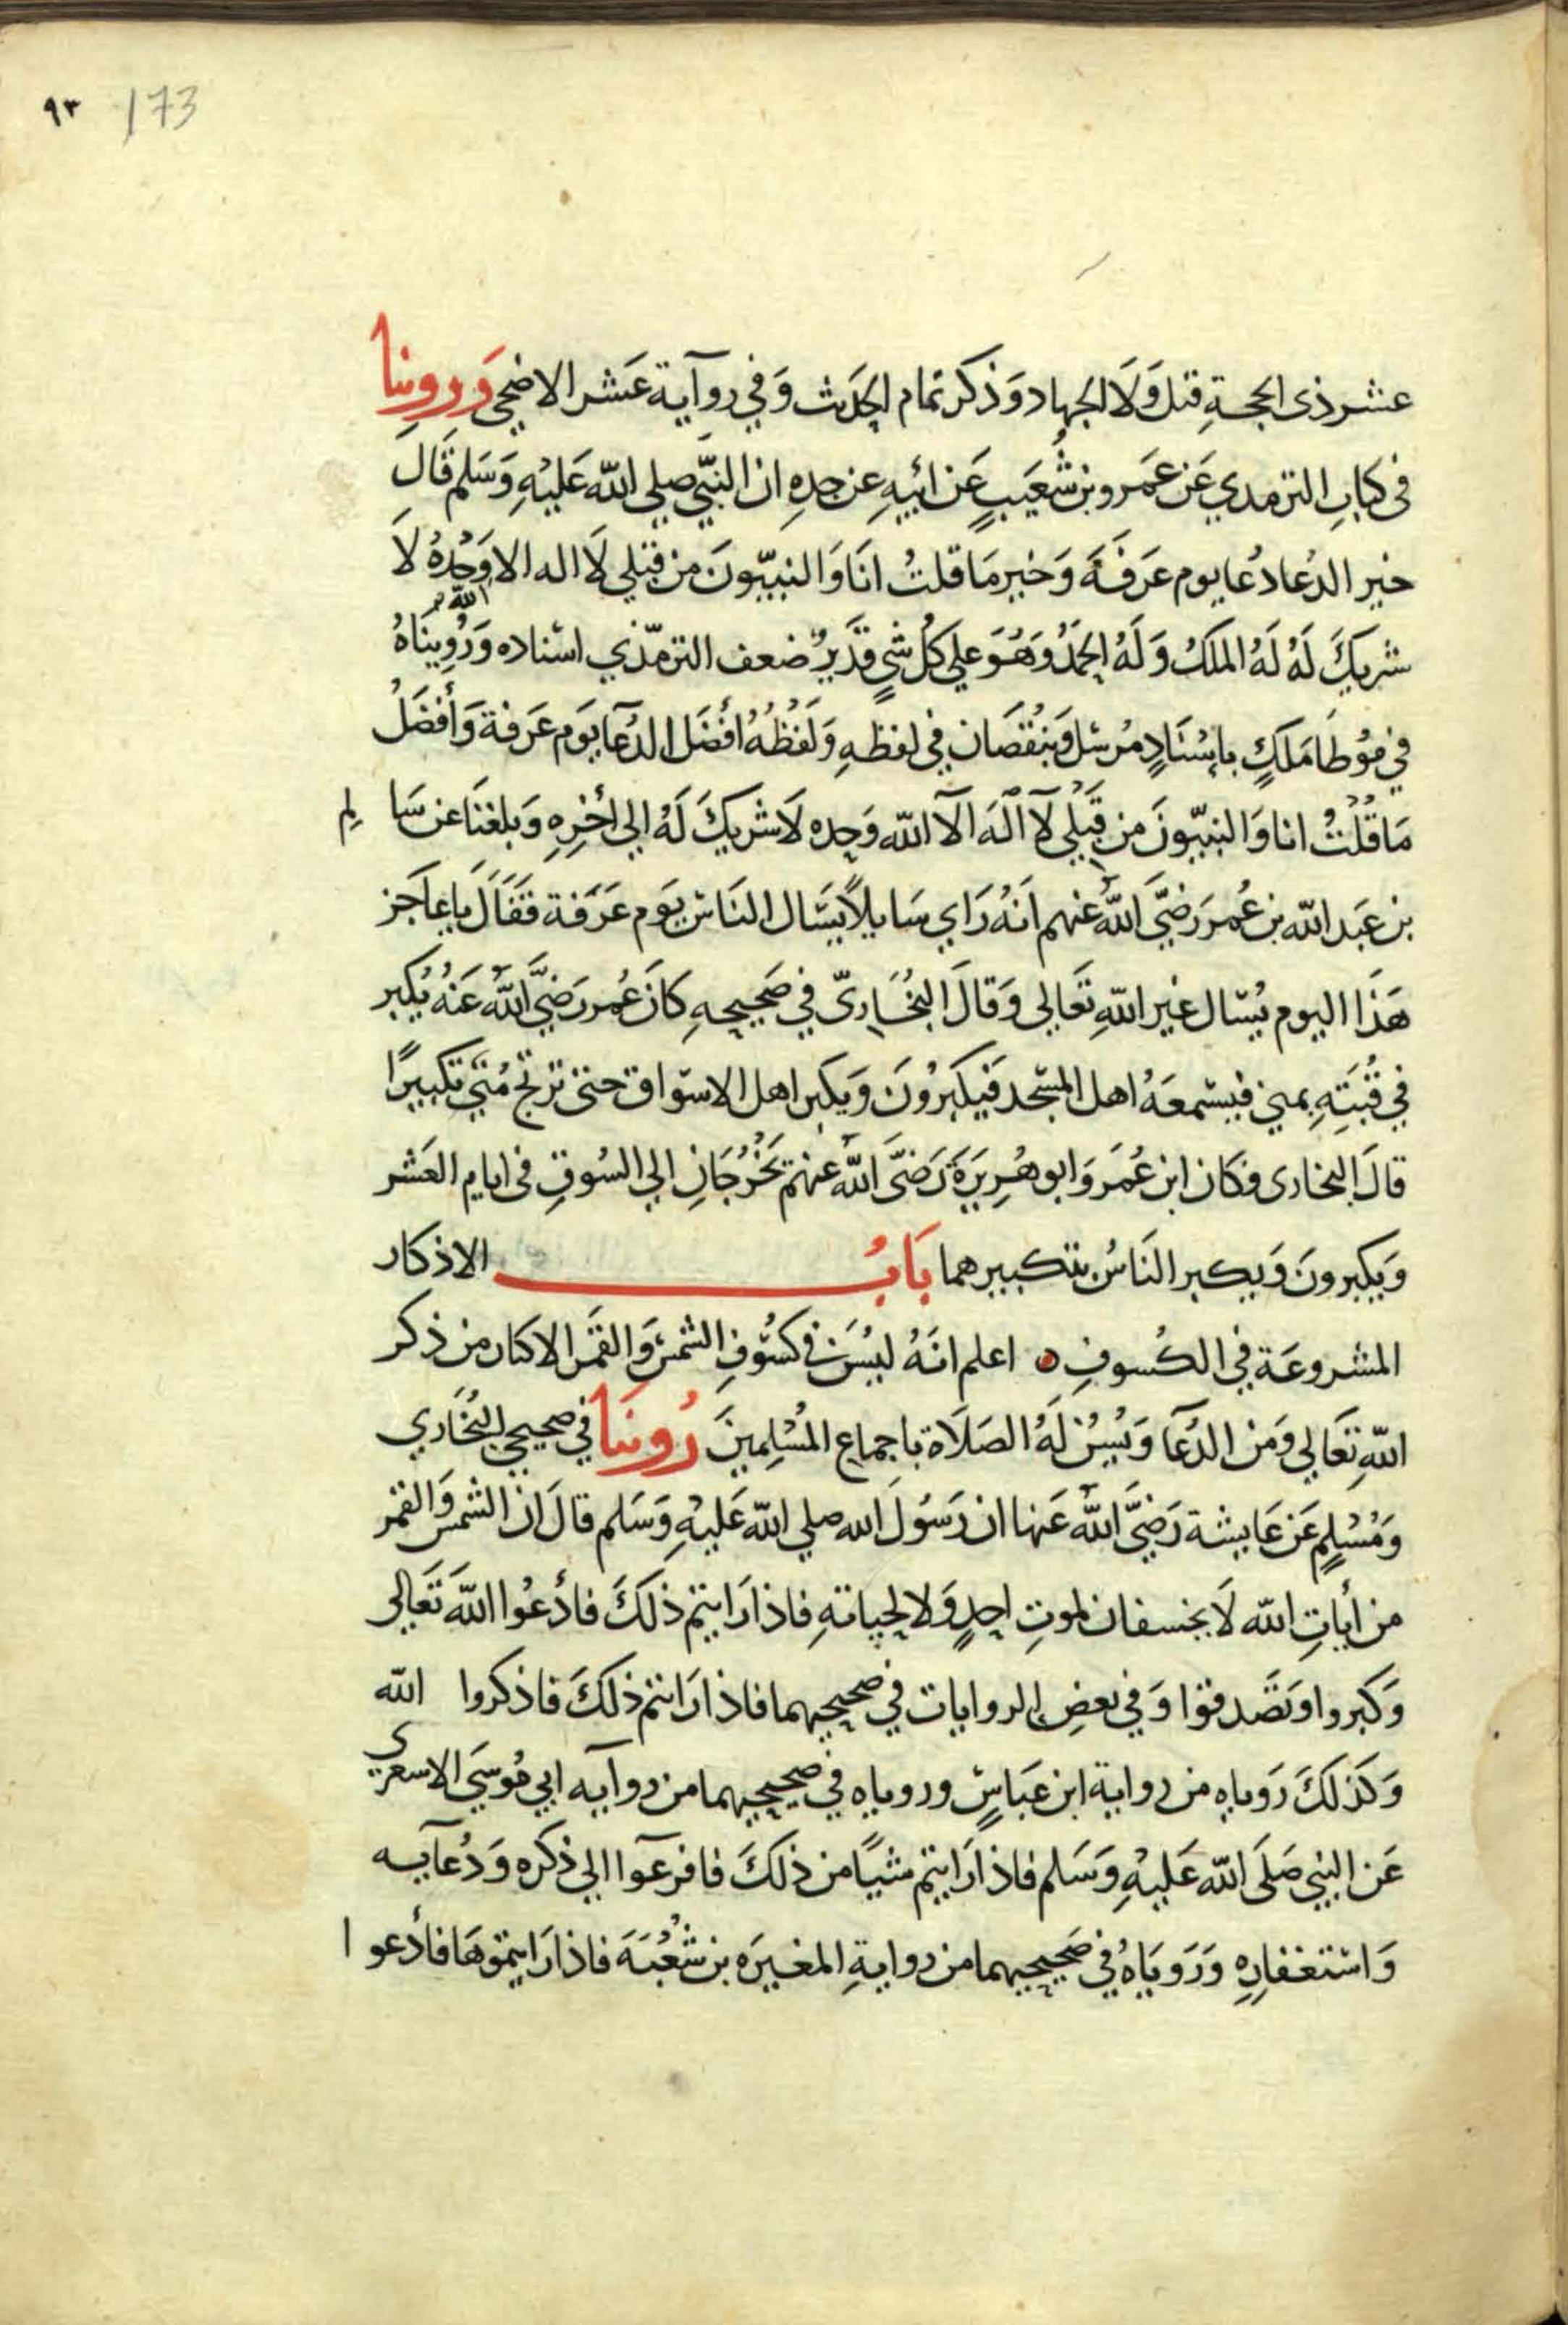 ٩٣ 173
عشر ذى الحجة قيل ولا الجهاد وذكر تمام الحديث وفي رواية عشر الاضحي وروينا
فى كتاب الترمدي عن عمرو بن شعيب عن ابيه عن جده ان النبي صلي الله عليه وسلم قال
خير الدعا دعا يوم عرفة وخير ما قلت انا والنبيون من قبلي لا اله الا الله وحده لا
شريك له له الملك وله الحمد وهو علي كل شي قدير ضعف الترمذي اسناده ورويناه
في موطا ملك باسناد مرسل وبنقصان في لفظه ولفظه أفضل الدعآ يوم عرفة وأفضل
ما قلت انا والنبيون من قبلي لآ اله الآ الله وحده لا شريك له الي أخره وبلغنا عن سالم
بن عبد الله بن عمر رضي الله عنهم انه راي سايلا يسال الناس يوم عرفة فقال يا عاجز
هذا اليوم يسال غير الله تعالي وقال البخاري في صحيحه كان عمر رضي الله عنه يكبر
في قبته بمني فيسمعه اهل المسجد فيكبرون ويكبر اهل الاسواق حتى ترتج مني تكبيرا
قال البخارى فكان ابن عمر وابو هريرة رضى الله عنهم يخرجان الي السوق فى ايام العشر
ويكبرون ويكبر الناس بتكبيرهما باب الاذكار
المشروعة في الكسوف اعلم انه ليسن في كسوف الشمس والقمر الاكثار من ذكر
الله تعالي ومن الدعآ ويسن له الصلاة باجماع المسلمين روينا في صحيحي البخاري
ومسلم عن عايشة رضي الله عنها ان رسول الله صلي الله عليه وسلم قال ان الشمس والقمر
من أيات الله لا يخسفان لموت احد ولا لحياته فاذا رايتم ذلك فادعوا الله تعالى
وكبروا وتصدقوا وفي بعض الروايات في صحيحيهما فاذا رايتم ذلك فاذكروا الله
وكذلك روياه من رواية ابن عباس وروياه في صحيحيهما من روآيه ابي موسي الاسعري
عن النبي صلى الله عليه وسلم فاذا رايتم شيا من ذلك فافرعوا الي ذكره ودعآيه
واستغفاره وروياه في صحيحيهما من رواية المغيره بن شعبة فاذا رايتموها فأدعوا